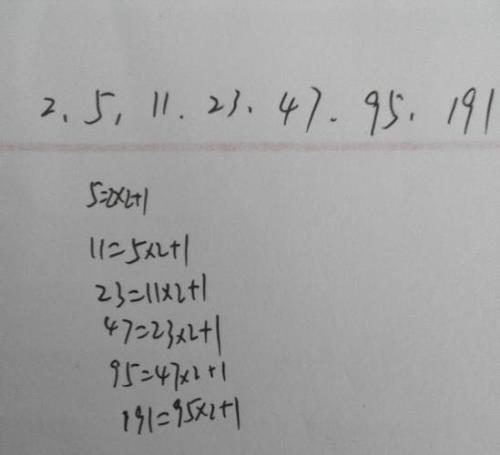 2、5，11．23．47．95．191
5=2×2+1
11=5×2+1
23=11×2+1
47=23×2+1
95=47×2+1
191=95×2+1